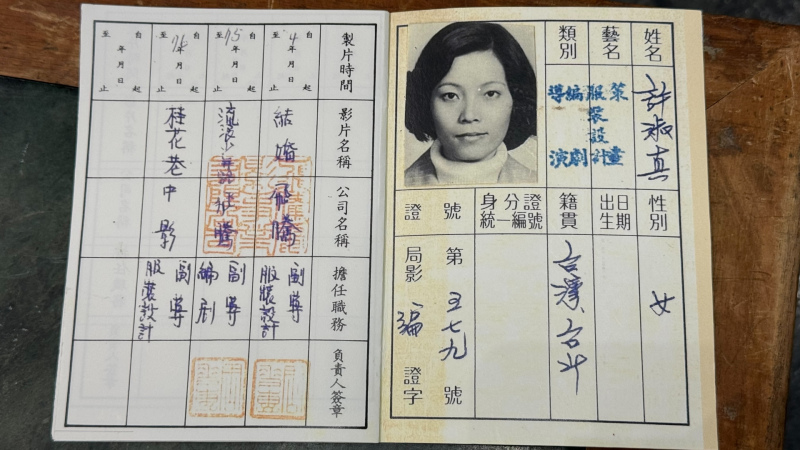 姓名
許淑真
性別
女
藝名
出生日期
類別
策畫
服裝設計
編劇
導演
籍貫
台灣台
身分證
統編號
證號
局影編證字
第五七九號
製片時間
影片名稱
公司名稱
擔任職務
負責人簽章
自 4 年 月 日
至 年 月 日 止
結婚
飛騰
副導
服裝設計
自 75 年 月 日
至 年 月 日 止
流浪少
騰
副導
編劇
自 76 年 月 日
至 年 月 日 止
桂花巷
中影
副導
服裝設計